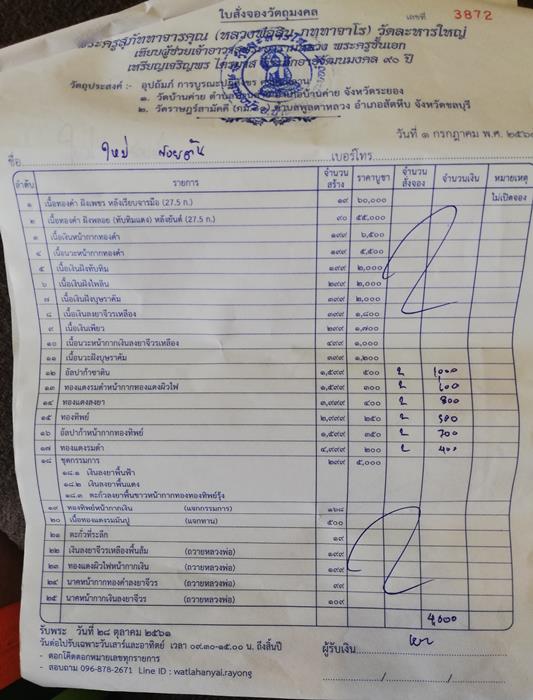 ใบสั่งจองวัตถุมงคล
เลขที่ 3872
พระครูสุภัททาจารคุณ (หลวงพ่อสิน ภททาจาโร) วัดละหารใหญ่
เหรียญเจริญพร ๙๐ ปี
วัตถุประสงค์ :- อุปถัมภ์ การบูรณะ
๑. วัดบ้านค่าย อำเภอบ้านค่าย จังหวัดระยอง
๒. วัดราษฎร์สามัคคี ตำบลพูตาหลวง อำเภอสัตหีบ จังหวัดชลบุรี
วันที่ ๑ กรกฎาคม พ.ศ. ๒๕๖๑
ชื่อ ใหม่ เบอร์โทร
ลำดับ รายการ จำนวนสร้าง ราคาบูชา จำนวนสั่งจอง จำนวนเงิน หมายเหตุ
๑ เนื้อทองคำ ฝังเพชร หลังเรียบจารมือ (27.5 ก.) ๑๙ ๖๐,๐๐๐ ไม่เปิดจอง
๒ เนื้อทองคำ ฝังพลอย (ทับทิมแดง) หลังยันต์ (27.5 ก.) ๙๐ ๕๕,๐๐๐
๓ เนื้อเงินหน้ากากทองคำ ๑๙๙ ๖,๕๐๐
๔ เนื้อนวะหน้ากากทองคำ ๑๙๙ ๕,๕๐๐
๕ เนื้อเงินฝังทับทิม ๑๙๙ ๒,๐๐๐
๖ เนื้อเงินฝังไพลิน ๒๙๙ ๒,๐๐๐
๗ เนื้อเงินฝังบุษราคัม ๓๙๙ ๒,๐๐๐
๘ เนื้อเงินลงยาจีวรเหลือง ๓๙๙ ๑,๘๐๐
๙ เนื้อเงินเพียว ๒๙๙ ๑,๗๐๐
๑๐ เนื้อนวะหน้ากากเงินลงยาจีวรเหลือง ๔๙๙ ๑,๐๐๐
๑๑ เนื้อนวะฝังบุษราคัม ๓๙๙ ๑,๒๐๐
๑๒ อัลปาก้าซาติน ๑,๕๙๙ ๕๐๐ ๒ ๑๐๐๐
๑๓ ทองแดงรมดำหน้ากากทองแดงผิวไฟ ๑,๕๙๙ ๓๐๐ ๒ ๖๐๐
๑๔ ทองแดงลงยา ๓,๙๙๙ ๔๐๐ ๒ ๘๐๐
๑๕ ทองทิพย์ ๒,๙๙๙ ๒๕๐ ๒ ๕๐๐
๑๖ อัลปาก้าหน้ากากทองทิพย์ ๑,๕๙๙ ๓๕๐ ๒ ๗๐๐
๑๗ ทองแดงรมดำ ๔,๙๙๙ ๒๐๐ ๒ ๔๐๐
๑๘ ชุดกรรมการ ๒๙๙ ๕,๐๐๐
๑๘.๑ เงินลงยาพื้นฟ้า
๑๘.๒ เงินลงยาพื้นแดง
๑๘.๓ ตะกั่วลงยาพื้นขาวหน้ากากทองทองทิพย์รุ้ง
๑๙ ทองทิพย์หน้ากากเงิน (แจกกรรมการ) ๑๖๘
๒๐ เนื้อทองแดงรมมันปู (แจกทาน) ๕๐๐
๒๑ ตะกั่วที่ระลึก ๑๙
๒๒ เงินลงยาจีวรเหลืองพื้นส้ม (ถวายหลวงพ่อ) ๑๙๙
๒๓ ทองแดงผิวไฟหน้ากากเงิน (ถวายหลวงพ่อ) ๑๙๙
๒๔ นาคหน้ากากทองคำลงยาจีวร (ถวายหลวงพ่อ) ๙๙
๒๕ นาคหน้ากากเงินลงยาจีวร (ถวายหลวงพ่อ) ๑๐๙
4,000
รับพระ วันที่ ๒๘ ตุลาคม ๒๕๖๑
วันต่อไปรับเฉพาะวันเสาร์และอาทิตย์ เวลา ๐๙.๓๐-๑๕.๐๐ น. ถึงสิ้นปี
- ตอกโค๊ตตอกหมายเลขทุกรายการ
- สอบถาม 096-878-2671 Line ID : watlahanyai.rayong
ผู้รับเงิน